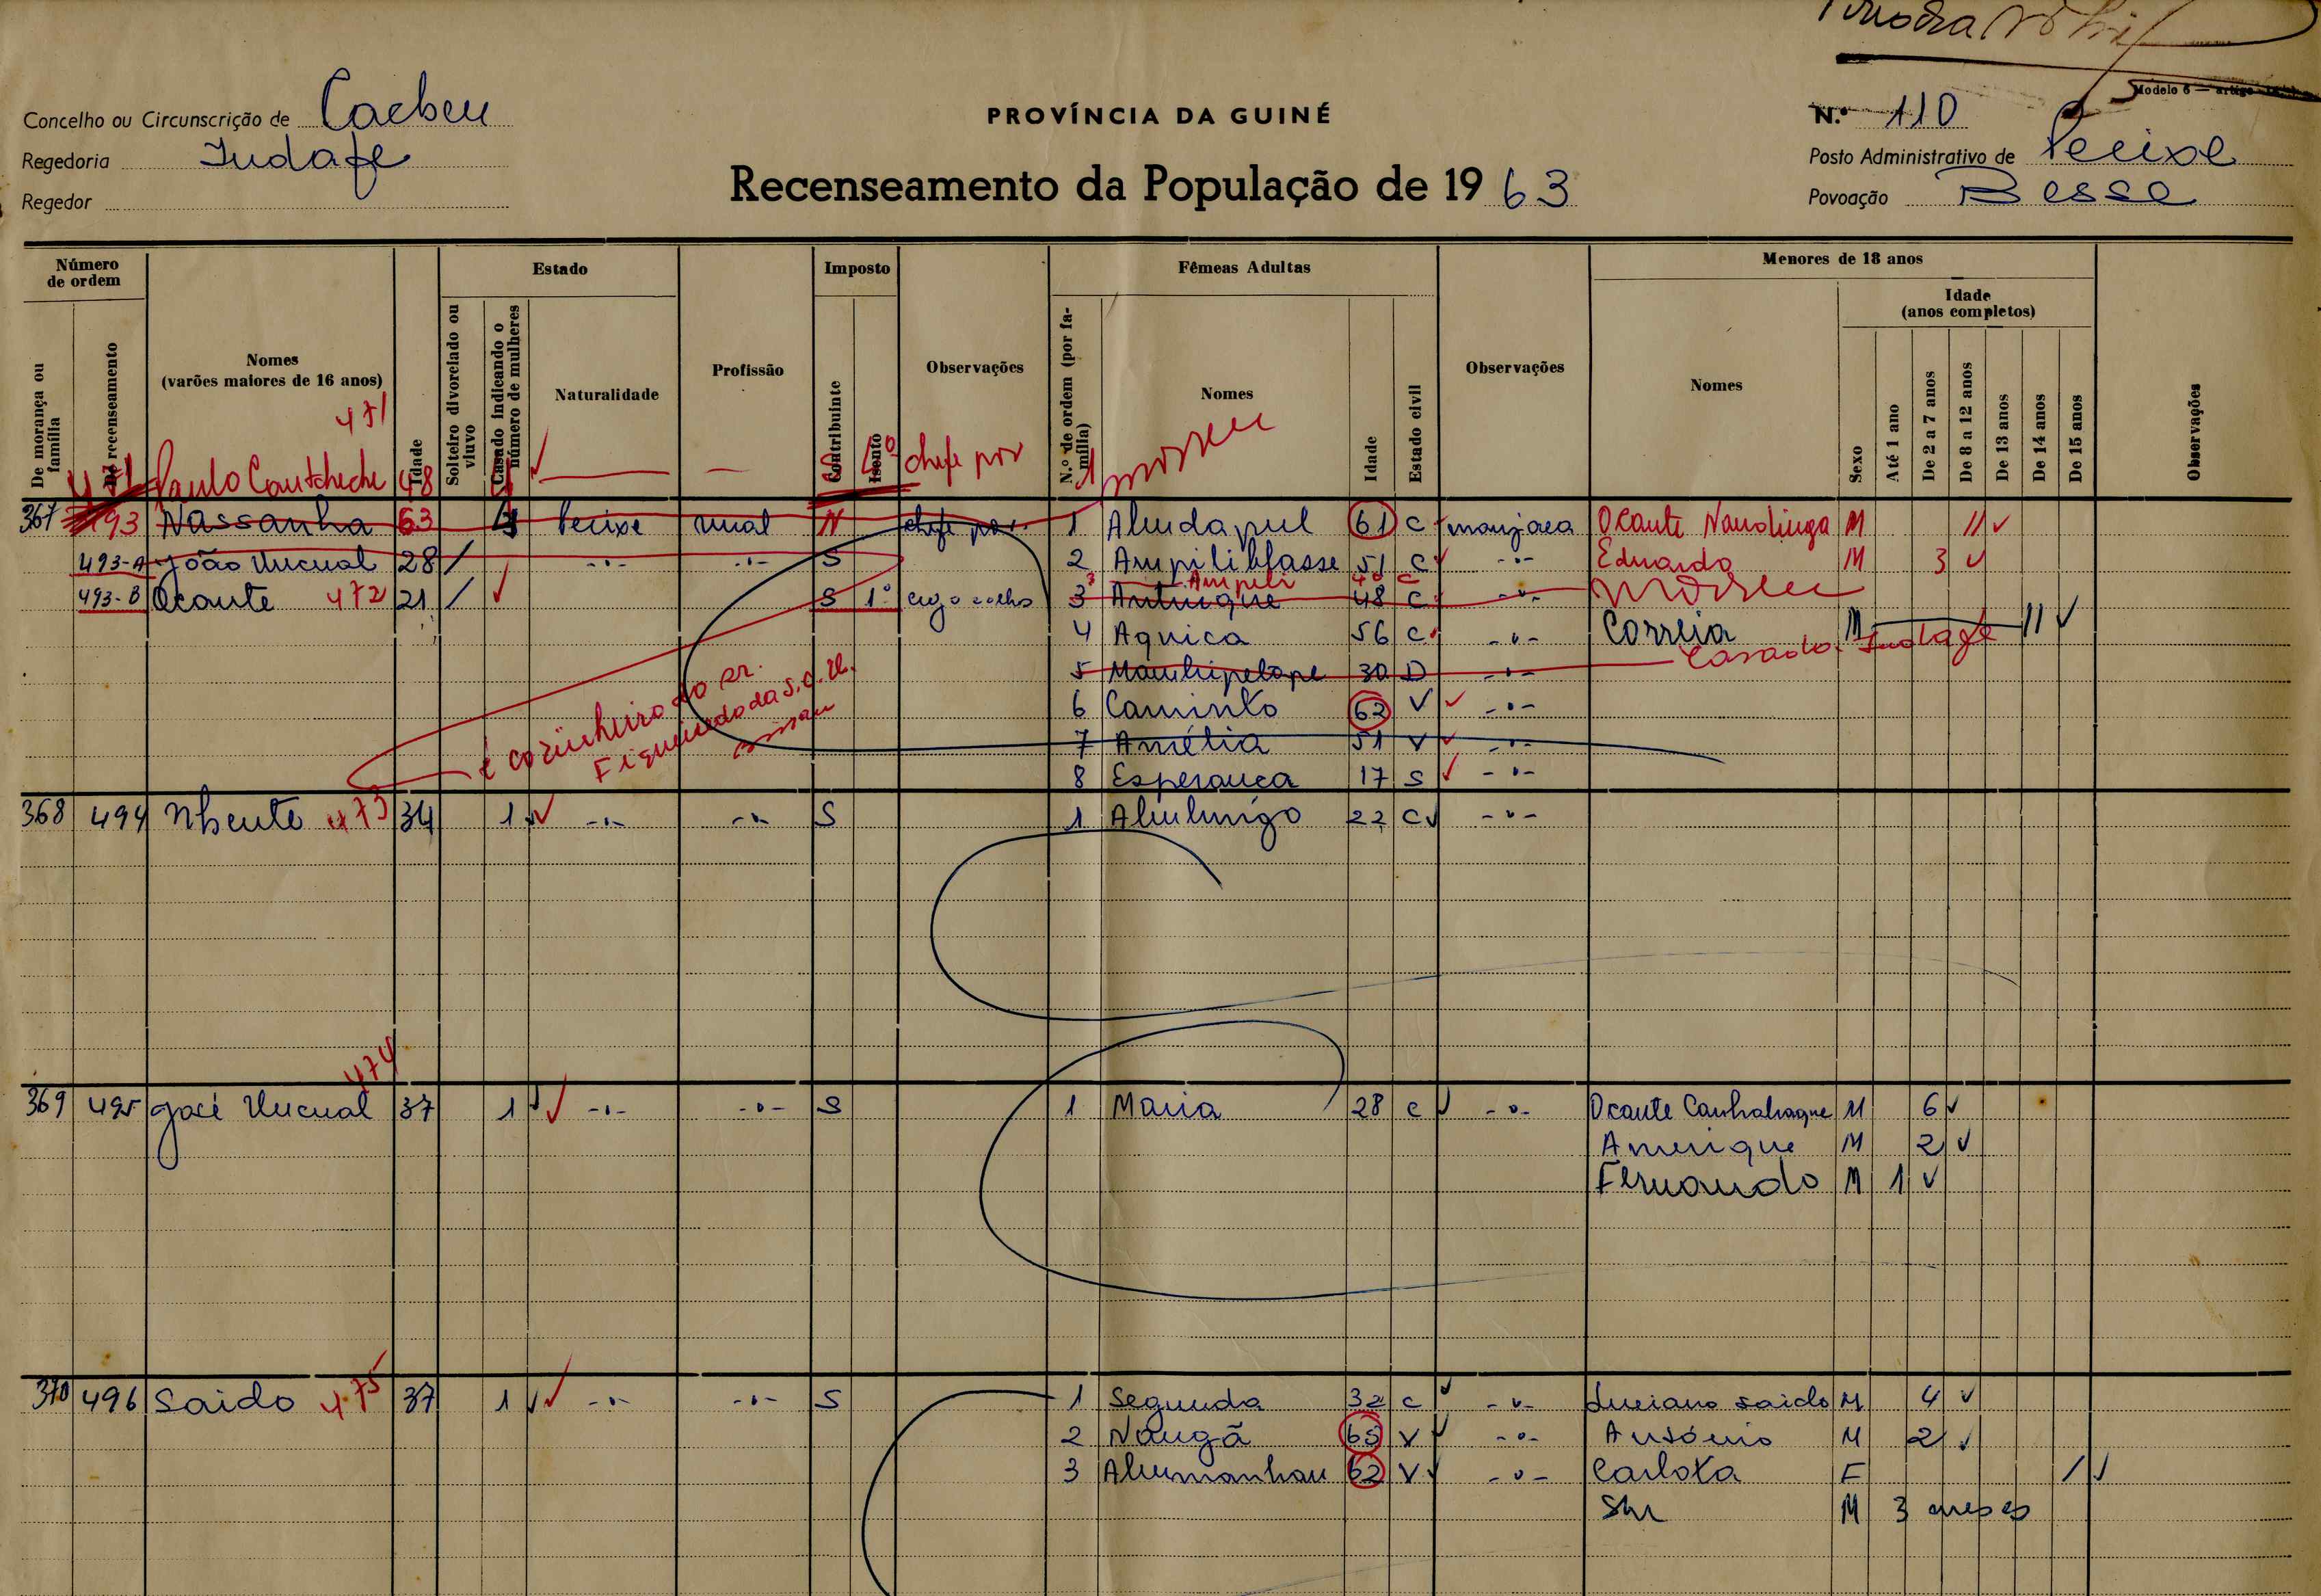 Concelho ou Circunscrição de Cacheu
Regedoria Indafe
Regedor
PROVÍNCIA DA GUINÉ
Recenseamento da População de 1963
Modelo 6 — artigo
N.º 110
Posto Administrativo de Pecixe
Povoação Besse
Número de ordem
De morança ou família
De recenseamento
Nomes
(varões maiores de 16 anos)
Idade
Estado
Solteiro divorciado ou viuvo
Casado indicando o número de mulheres
Naturalidade
Profissão
Imposto
Contribuinte
Isento
Observações
Fêmeas Adultas
N.º de ordem (por família)
Nomes
Idade
Estado civil
Observações
Menores de 18 anos
Nomes
Sexo
Idade
(anos completos)
Até 1 ano
De 2 a 7 anos
De 8 a 12 anos
De 13 anos
De 14 anos
De 15 anos
Observações
471
471 Paulo Cautcheche 48 S chefe por 1 morreu
367 493 Nassanha 63 4 Pecixe rural N chefe por 1 Aludapul 61 C manjaca Ocante Nandinga M 11
493-A João Uncual 28 / -"- -"- S 2 Ampiliblasse 51 C -"- Eduardo M 3
3 Ampili 40 C
493-B Ocante 472 21 / S 1º cego olho 3 Antuique 48 C -"- morreu
4 Aquica 56 C -"- Correia M 11
5 Mauhipelope 30 D -"- Casado. Indafe
é cozinheiro do sr.
Figueiredo da S.C.U.
Bissau
6 Caminto 62 V -"-
7 Amélia 51 V -"-
8 Esperança 17 S -"-
368 494 Nhente 473 34 1 -"- -"- S 1 Alulungo 22 C -"-
474
369 495 José Uncual 37 1 -"- -"- S 1 Maria 28 C -"- Ocante Canhabaque M 6
Amerique M 2
Fernando M 1
370 496 Saido 475 37 1 -"- -"- S 1 Segunda 32 C -"- Luciano Saido M 4
2 Nougã 65 V -"- António M 2
3 Alumanhau 62 V -"- Carlota F /
S/n M 3 meses